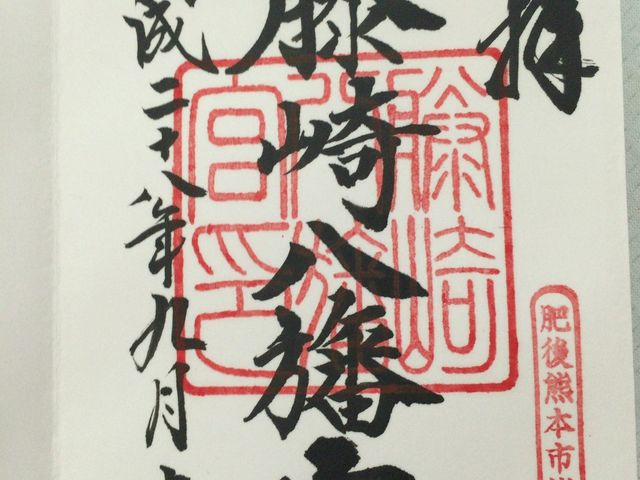 拝
肥後熊本市
藤崎八旛宮
藤崎八旛宮印
成二十八年九月